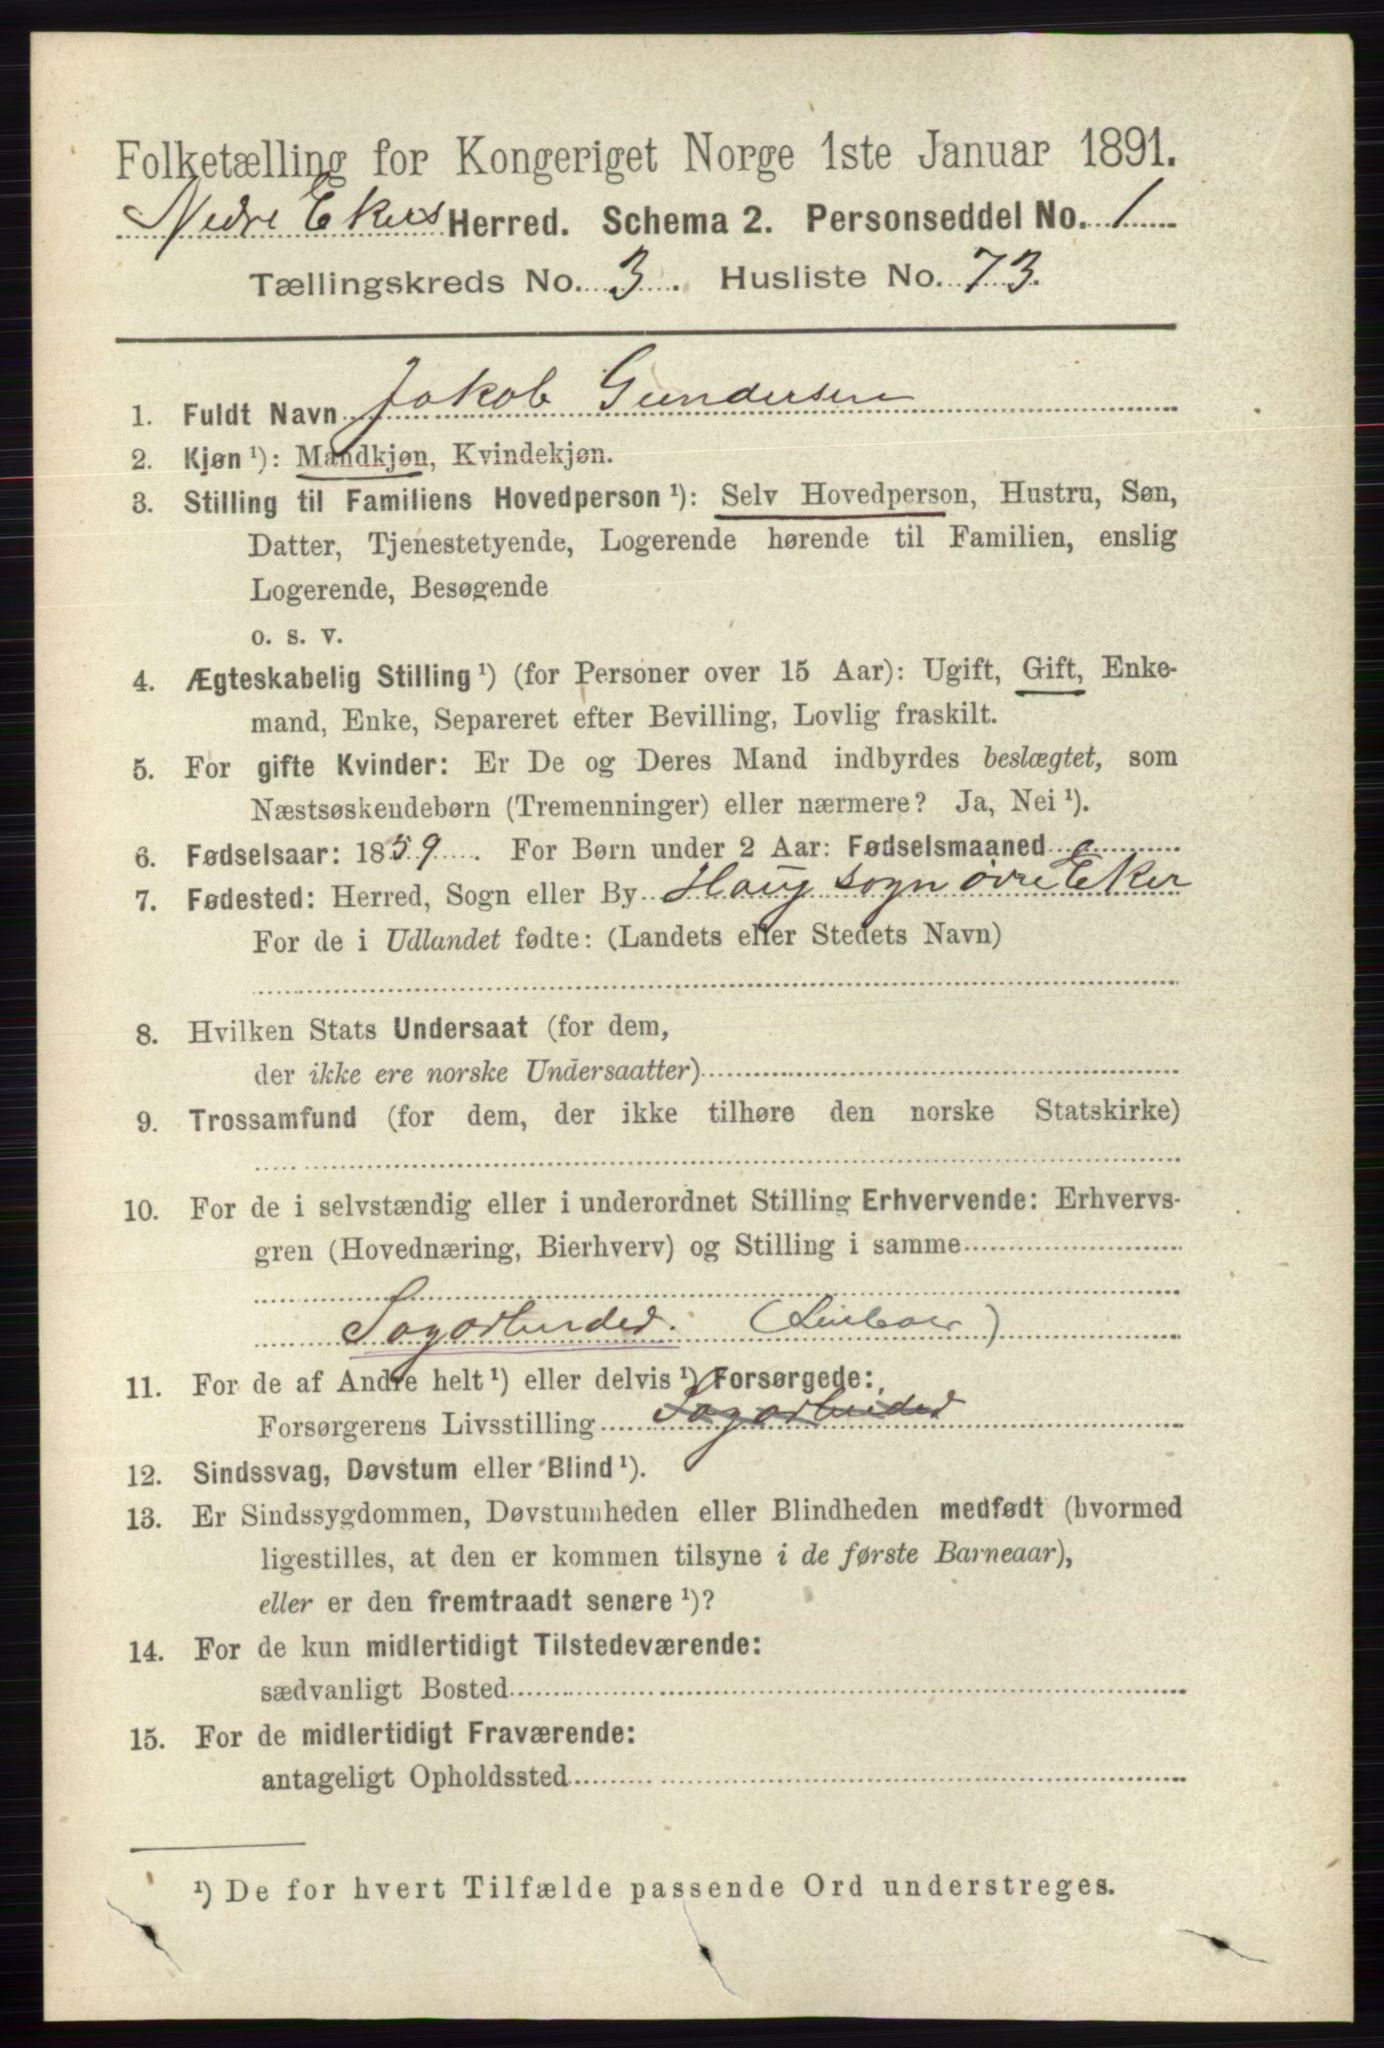 Folketælling for Kongeriget Norge 1ste Januar 1891.
Nedre Ekers Herred. Schema 2. Personseddel No. 1
Tællingskreds No. 3. Husliste No. 73.
1. Fuldt Navn Jakob Gundersen
2. Kjøn ¹): Mandkjøn, Kvindekjøn.
3. Stilling til Familiens Hovedperson ¹): Selv Hovedperson, Hustru, Søn,
Datter, Tjenestetyende, Logerende hørende til Familien, enslig
Logerende, Besøgende
o. s. v.
4. Ægteskabelig Stilling ¹) (for Personer over 15 Aar): Ugift, Gift, Enke-
mand, Enke, Separeret efter Bevilling, Lovlig fraskilt.
5. For gifte Kvinder: Er De og Deres Mand indbyrdes beslægtet, som
Næstsøskendebørn (Tremenninger) eller nærmere? Ja, Nei ¹).
6. Fødselsaar: 1859. For Børn under 2 Aar: Fødselsmaaned
7. Fødested: Herred, Sogn eller By Haug sogn øvre Eker
For de i Udlandet fødte: (Landets eller Stedets Navn)
8. Hvilken Stats Undersaat (for dem,
der ikke ere norske Undersaatter)
9. Trossamfund (for dem, der ikke tilhøre den norske Statskirke)
10. For de i selvstændig eller i underordnet Stilling Erhvervende: Erhvervs-
gren (Hovednæring, Bierhverv) og Stilling i samme
Sagarbeider.
11. For de af Andre helt ¹) eller delvis ¹) Forsørgede:
Forsørgerens Livsstilling Sagarbeider
12. Sindssvag, Døvstum eller Blind ¹).
13. Er Sindssygdommen, Døvstumheden eller Blindheden medfødt (hvormed
ligestilles, at den er kommen tilsyne i de første Barneaar),
eller er den fremtraadt senere ¹)?
14. For de kun midlertidigt Tilstedeværende:
sædvanligt Bosted
15. For de midlertidigt Fraværende:
antageligt Opholdssted
¹) De for hvert Tilfælde passende Ord understreges.